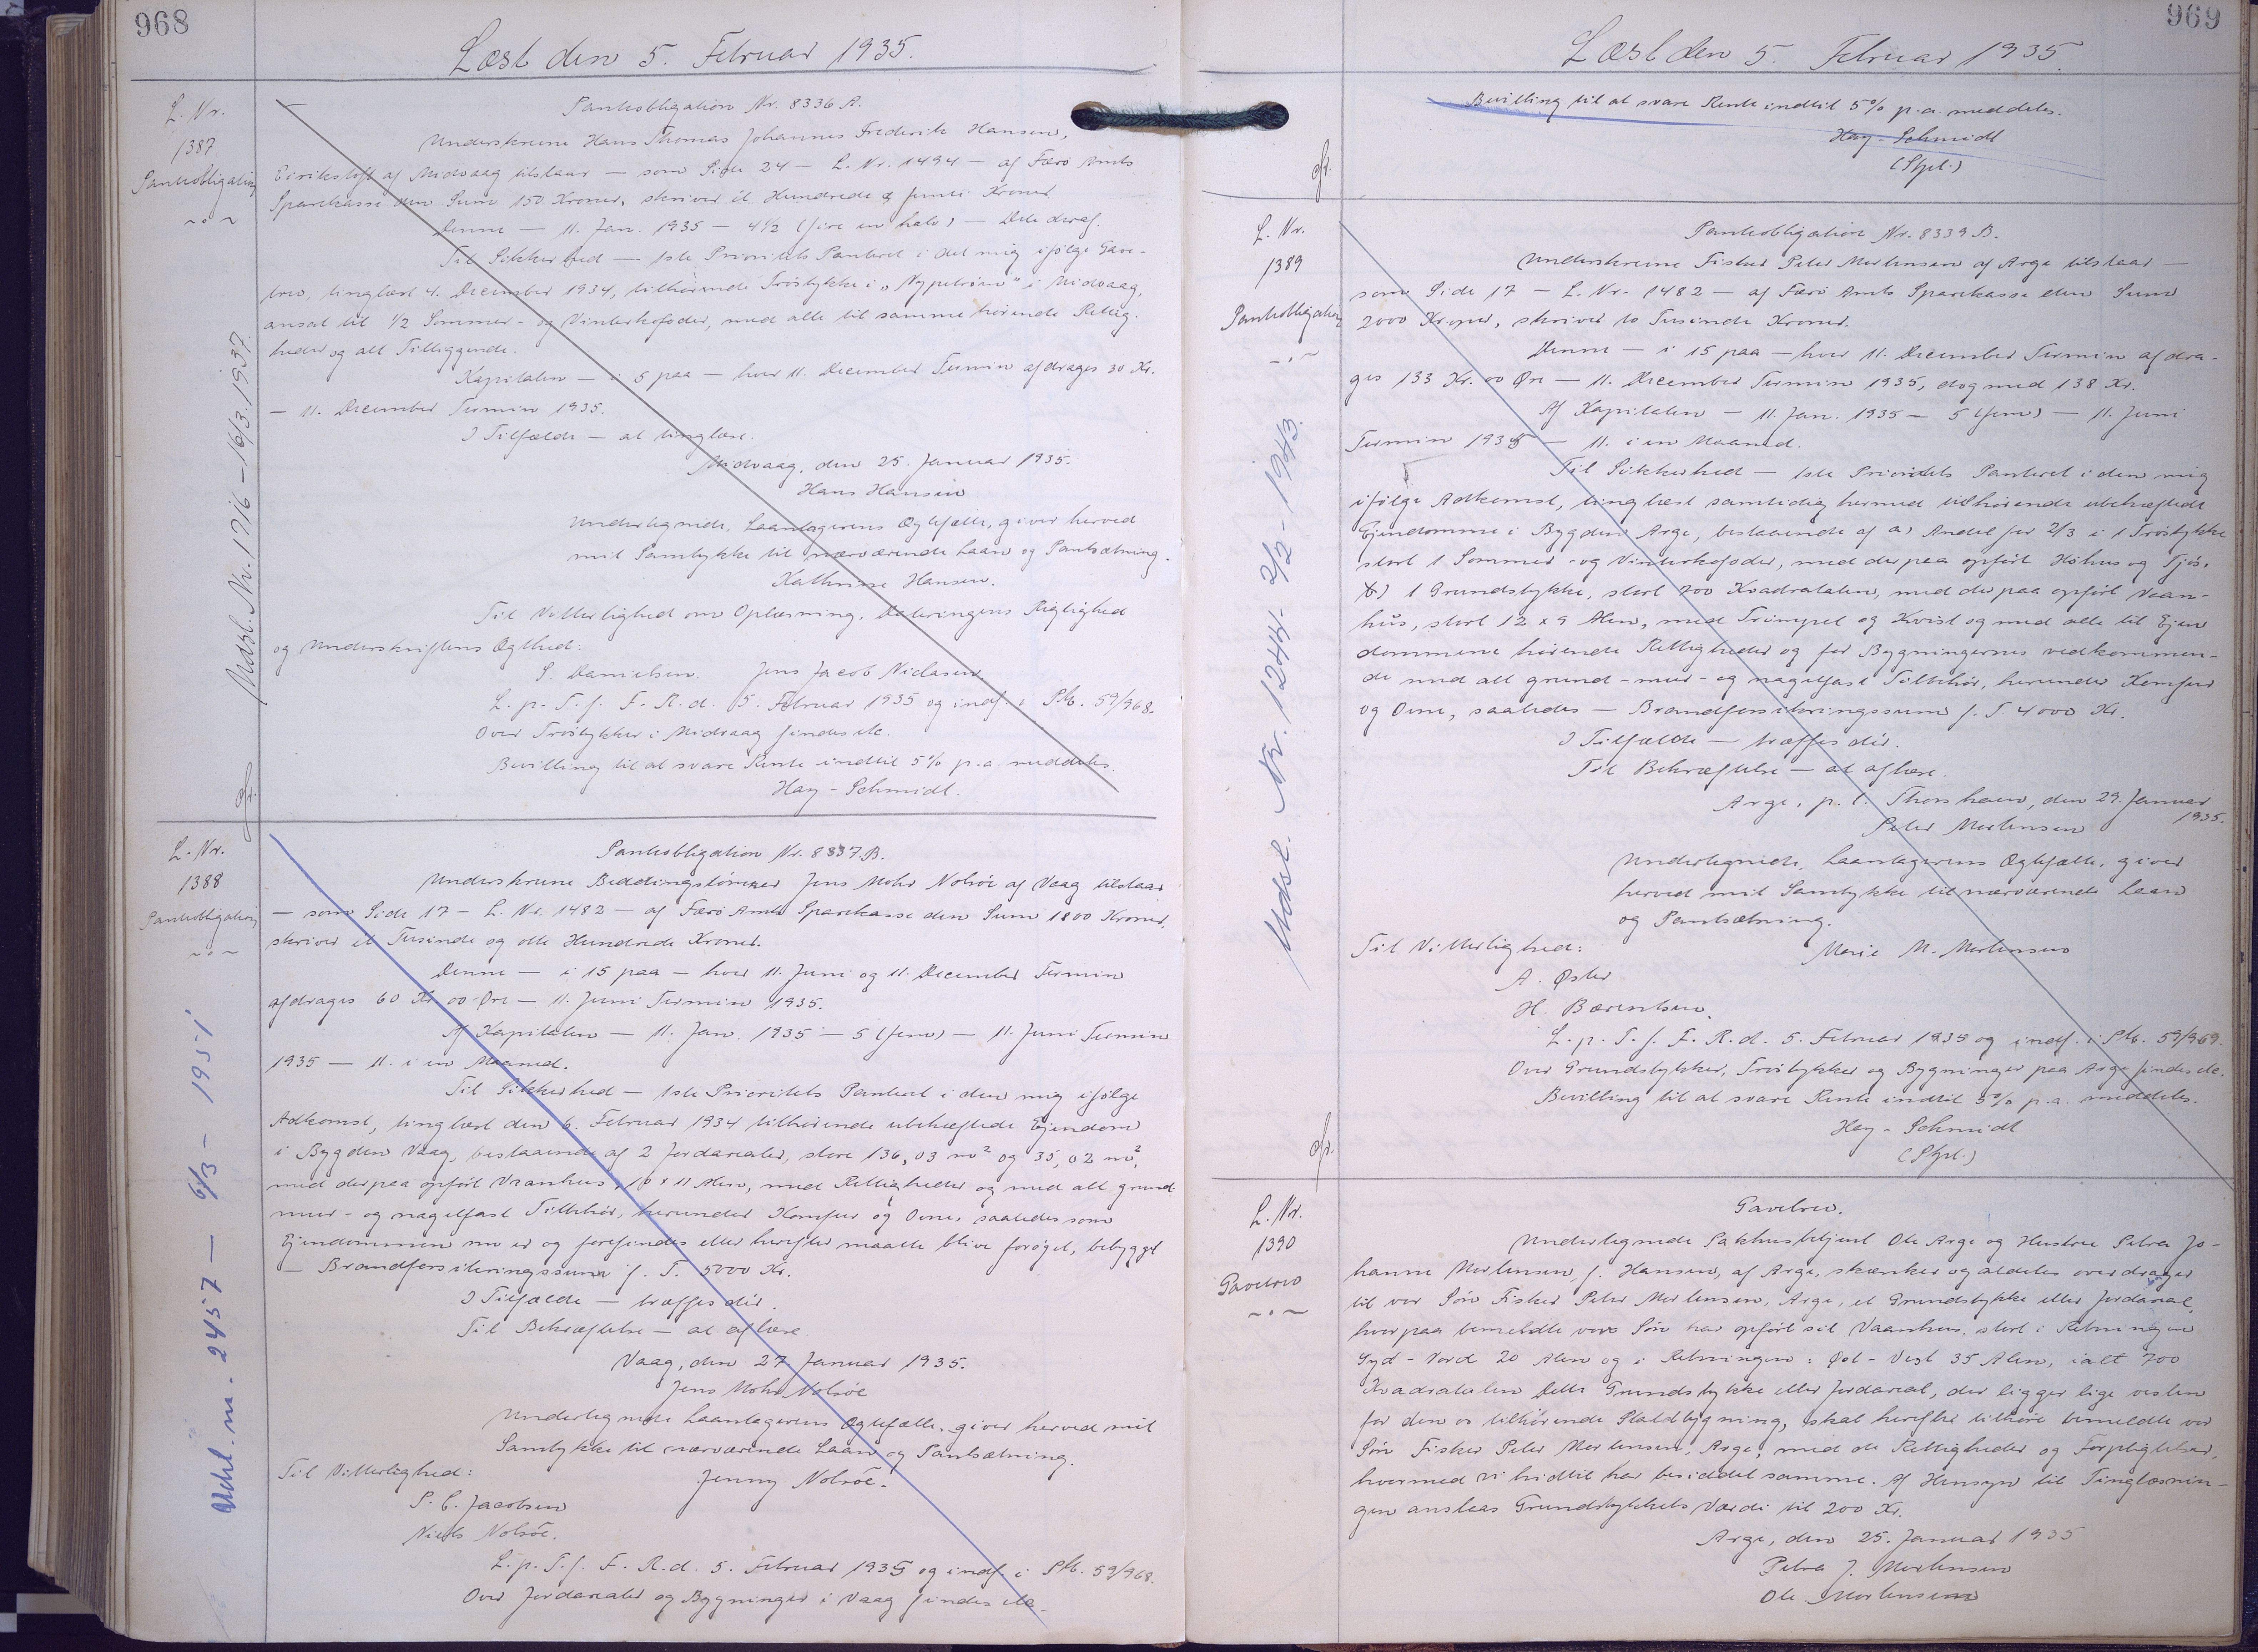 968
Læst den 5. Februar 1935.
L. Nr.
1387
Pantobligation
Udsl. Nr. 1716 - 16/3. 1937.
Pantobligation Nr. 8336 A.
Underskrevne Hans Thomas Johannes Frederik Hansen,
af Midvaag tilstaar — som Side 24 — L. Nr. 1494 — af Færø Amts
Sparekasse den Sum 150 Kroner, skriver et Hundrede og femti Kroner.
Denne — 11. Jan. 1935 — 4½ (fire en halv) — Dele deraf.
Til Sikkerhed — 1ste Prioritets Panteret i det mig ifølge Gave-
brev, tinglæst 4. December 1934, tilhørende Tröstykke i „ " i Midvaag,
ansat til ½ Sommer- og Vinterkofoder, med alle til samme hørende Rettig-
heder og alt Tilliggende.
Kapitalen — i 5 paa — hver 11. December Termin afdrages 30 Kr.
— 11. December Termin 1935.
I Tilfælde — at tinglæse.
Midvaag, den 25. Januar 1935.
Hans Hansen
Undertegnede, Laantagerens Ægtefælle, giver herved
mit Samtykke til nærværende Laan og Pantsætning.
Kathrine Hansen.
Til Vitterlighed om Oplæsning, Dateringens Rigtighed
og Underskriftens Ægthed:
S. Danielsen. Jens Jacob Niclasen.
L. p. T. f. F. R. d. 5. Februar 1935 og indf. i Ptb. 59/968.
Over Tröstykker i Midvaag findes etc.
Bevilling til at svare Rente indtil 5% p.a. meddeles.
Hay-Schmidt.
L. Nr.
1388
Pantobligation
Udsl. nr. 2457 — 6/3 - 1951
Pantobligation Nr. 8337 B.
Underskrevne Beddingstömrer Jens Mohr Nolsöe af Vaag tilstaar
— som Side 17 — L. Nr. 1482 — af Færø Amts Sparekasse den Sum 1800 Kroner,
skriver et Tusinde og otte Hundrede Kroner.
Denne — i 15 paa — hver 11. Juni og 11. December Termin
afdrages 60 Kr. 00 Øre — 11. Juni Termin 1935.
Af Kapitalen — 11. Jan. 1935 — 5 (fem) — 11. Juni Termin
1935 — 11. i en Maaned.
Til Sikkerhed — 1ste Prioritets Panteret i den mig ifølge
Adkomst, tinglæst den 6. Februar 1934 tilhørende ubehæftede Ejendom
i Bygden Vaag, bestaaende af 2 Jordarealer, store 136,03 m² og 35,02 m²,
med derpaa opført Vaanhus, 10 x 11 Alen, med Rettigheder og med alt grund-
mur- og nagelfast Tilbehør, herunder Komfur og Ovne, saaledes som
Ejendommen nu er og forefindes eller herefter maatte blive forøget, bebygget
— Brandforsikringssum f. T. 5000 Kr.
I Tilfælde — træffes dér.
Til Bekræftelse — at aflæse.
Vaag, den 27 Januar 1935.
Jens Mohr Nolsöe
Undertegnede Laantagerens Ægtefælle, giver herved mit
Samtykke til nærværende Laan og Pantsætning.
Til Vitterlighed:
Jenny Nolsöe.
P. C. Jacobsen
Niels Nolsöe.
L. p. T. f. F. R. d. 5. Februar 1935 og indf. i Ptb. 59/968.
Over Jordarealer og Bygninger i Vaag findes etc.
969
Læst den 5. Februar 1935.
Bevilling til at svare Rente indtil 5% p.a. meddeles.
Hay-Schmidt
L. Nr.
1389
Pantobligation
Udsl. Nr. 1244 - 2/2 - 1943.
Pantobligation Nr. 8339 B.
Underskrevne Fisker Peter Mortensen af Arge tilstaar —
som Side 17 — L. Nr. 1482 — af Færø Amts Sparekasse den Sum
2000 Kroner, skriver to Tusinde Kroner.
Denne — i 15 paa — hver 11. December Termin afdra-
ges 133 Kr. 00 Øre — 11. December Termin 1935, dog med 138 Kr.
Af Kapitalen — 11. Jan. 1935 — 5 (fem) — 11. Juni
Termin 1935 — 11. i en Maaned.
Til Sikkerhed — 1ste Prioritets Panteret i den mig
ifølge Adkomst, tinglæst samtidig hermed tilhørende ubehæftede
Ejendomme i Bygden Arge, bestaaende af a) Andel for 2/3 i 1 Tröstykke
stort 1 Sommer- og Vinterkofoder, med derpaa opført Höhus og Fjös.
b) 1 Grundstykke, stort 700 Kvadratalen, med derpaa opført Vaan-
hus, stort 12 x 9 Alen, med Trimpel og Kvist og med alle til Ejen
dommene hørende Rettigheder og for Bygningernes vedkommen-
de med alt grund-mur- og nagelfast Tilbehør, herunder Komfur
og Ovne, saaledes — Brandforsikringssum f. T. 4000 Kr.
I Tilfælde — træffes dér.
Til Bekræftelse — at aflæse.
Arge, p. t. Thorshavn, den 29. Januar
1935.
Peter Mortensen
Undertegnede, Laantagerens Ægtefælle, giver
herved mit Samtykke til nærværende Laan
og Pantsætning.
Til Vitterlighed:
Marie M. Mortensen
A. Øster
H. Bærentsen.
L. p. T. f. F. R. d. 5. Februar 1935 og indf. i Ptb. 59/969.
Over Grundstykker, Tröstykker og Bygninger paa Arge findes etc.
Bevilling til at svare Rente indtil 5% p.a. meddeles.
Hay-Schmidt
L. Nr.
1390
Gavebrev
Gavebrev.
Undertegnede Pakhusbetjent Ole Arge og Hustru Petra Jo-
hanne Mortensen, f. Hansen, af Arge, skænker og aldeles overdrager
til vor Sön Fisker Peter Mortensen, Arge, et Grundstykke eller Jordareal,
hvorpaa bemeldte vor Sön har opført sit Vaanhus, stort i Retningen
Syd-Nord 20 Alen og i Retningen: Øst-Vest 35 Alen, ialt 700
Kvadratalen. Dette Grundstykke eller Jordareal, der ligger lige vesten
for den os tilhørende Staldbygning, skal herefter tilhøre bemeldte vor
Sön Fisker Peter Mortensen, Arge, med de Rettigheder og Forpligtelser,
hvormed vi hidtil har besiddet samme. Af Hensyn til Tinglæsnin-
gen ansættes Grundstykkets Værdi til 200 Kr.
Arge, den 25. Januar 1935
Petra J. Mortensen
Ole Mortensen